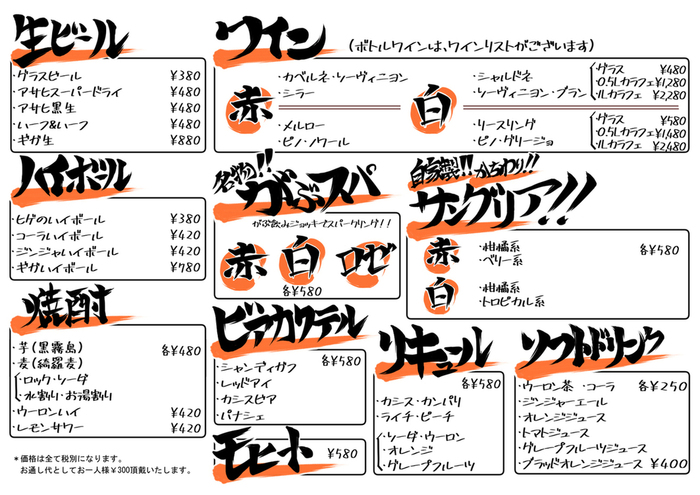 生ビール
・グラスビール ¥380
・アサヒスーパードライ ¥480
・アサヒ黒生 ¥480
・ハーフ&ハーフ ¥480
・ギガ生 ¥880
ワイン (ボトルワインは、ワインリストがございます)
赤
・カベルネ・ソーヴィニヨン
・シラー
・メルロー
・ピノ・ノワール
白
・シャルドネ
・ソーヴィニヨン・ブラン
・グラス ¥480
・0.5Lカラフェ ¥1,280
・1Lカラフェ ¥2,280
・リースリング
・ピノ・グリージョ
・グラス ¥580
・0.5Lカラフェ ¥1,480
・1Lカラフェ ¥2,480
ハイボール
・ヒゲのハイボール ¥380
・コーラハイボール ¥420
・ジンジャハイボール ¥420
・ギガハイボール ¥980
名物!!
がぶスパ
がぶ飲みジョッキでスパークリング!!
赤 白 ロゼ
各¥580
自家製!!かちわり!!
サングリア!!
赤
・柑橘系
・ベリー系
各¥580
白
・柑橘系
・トロピカル系
焼酎
・芋(黒霧島) 各¥480
・麦(綺羅麦)
・ロック・ソーダ
・水割り・お湯割り
・ウーロンハイ ¥420
・レモンサワー ¥420
ビアカクテル
各¥580
・シャンディガフ
・レッドアイ
・カシスビア
・パナシェ
モヒート ¥580
リキュール
各¥580
・カシス・カンパリ
・ライチ・ピーチ
・ソーダ・ウーロン
・オレンジ
・グレープフルーツ
ソフトドリンク
・ウーロン茶 ・コーラ 各¥250
・ジンジャーエール
・オレンジジュース
・トマトジュース
・グレープフルーツジュース
・ブラッドオレンジジュース ¥400
*価格は全て税別になります。
お通し代としてお一人様¥300頂戴いたします。